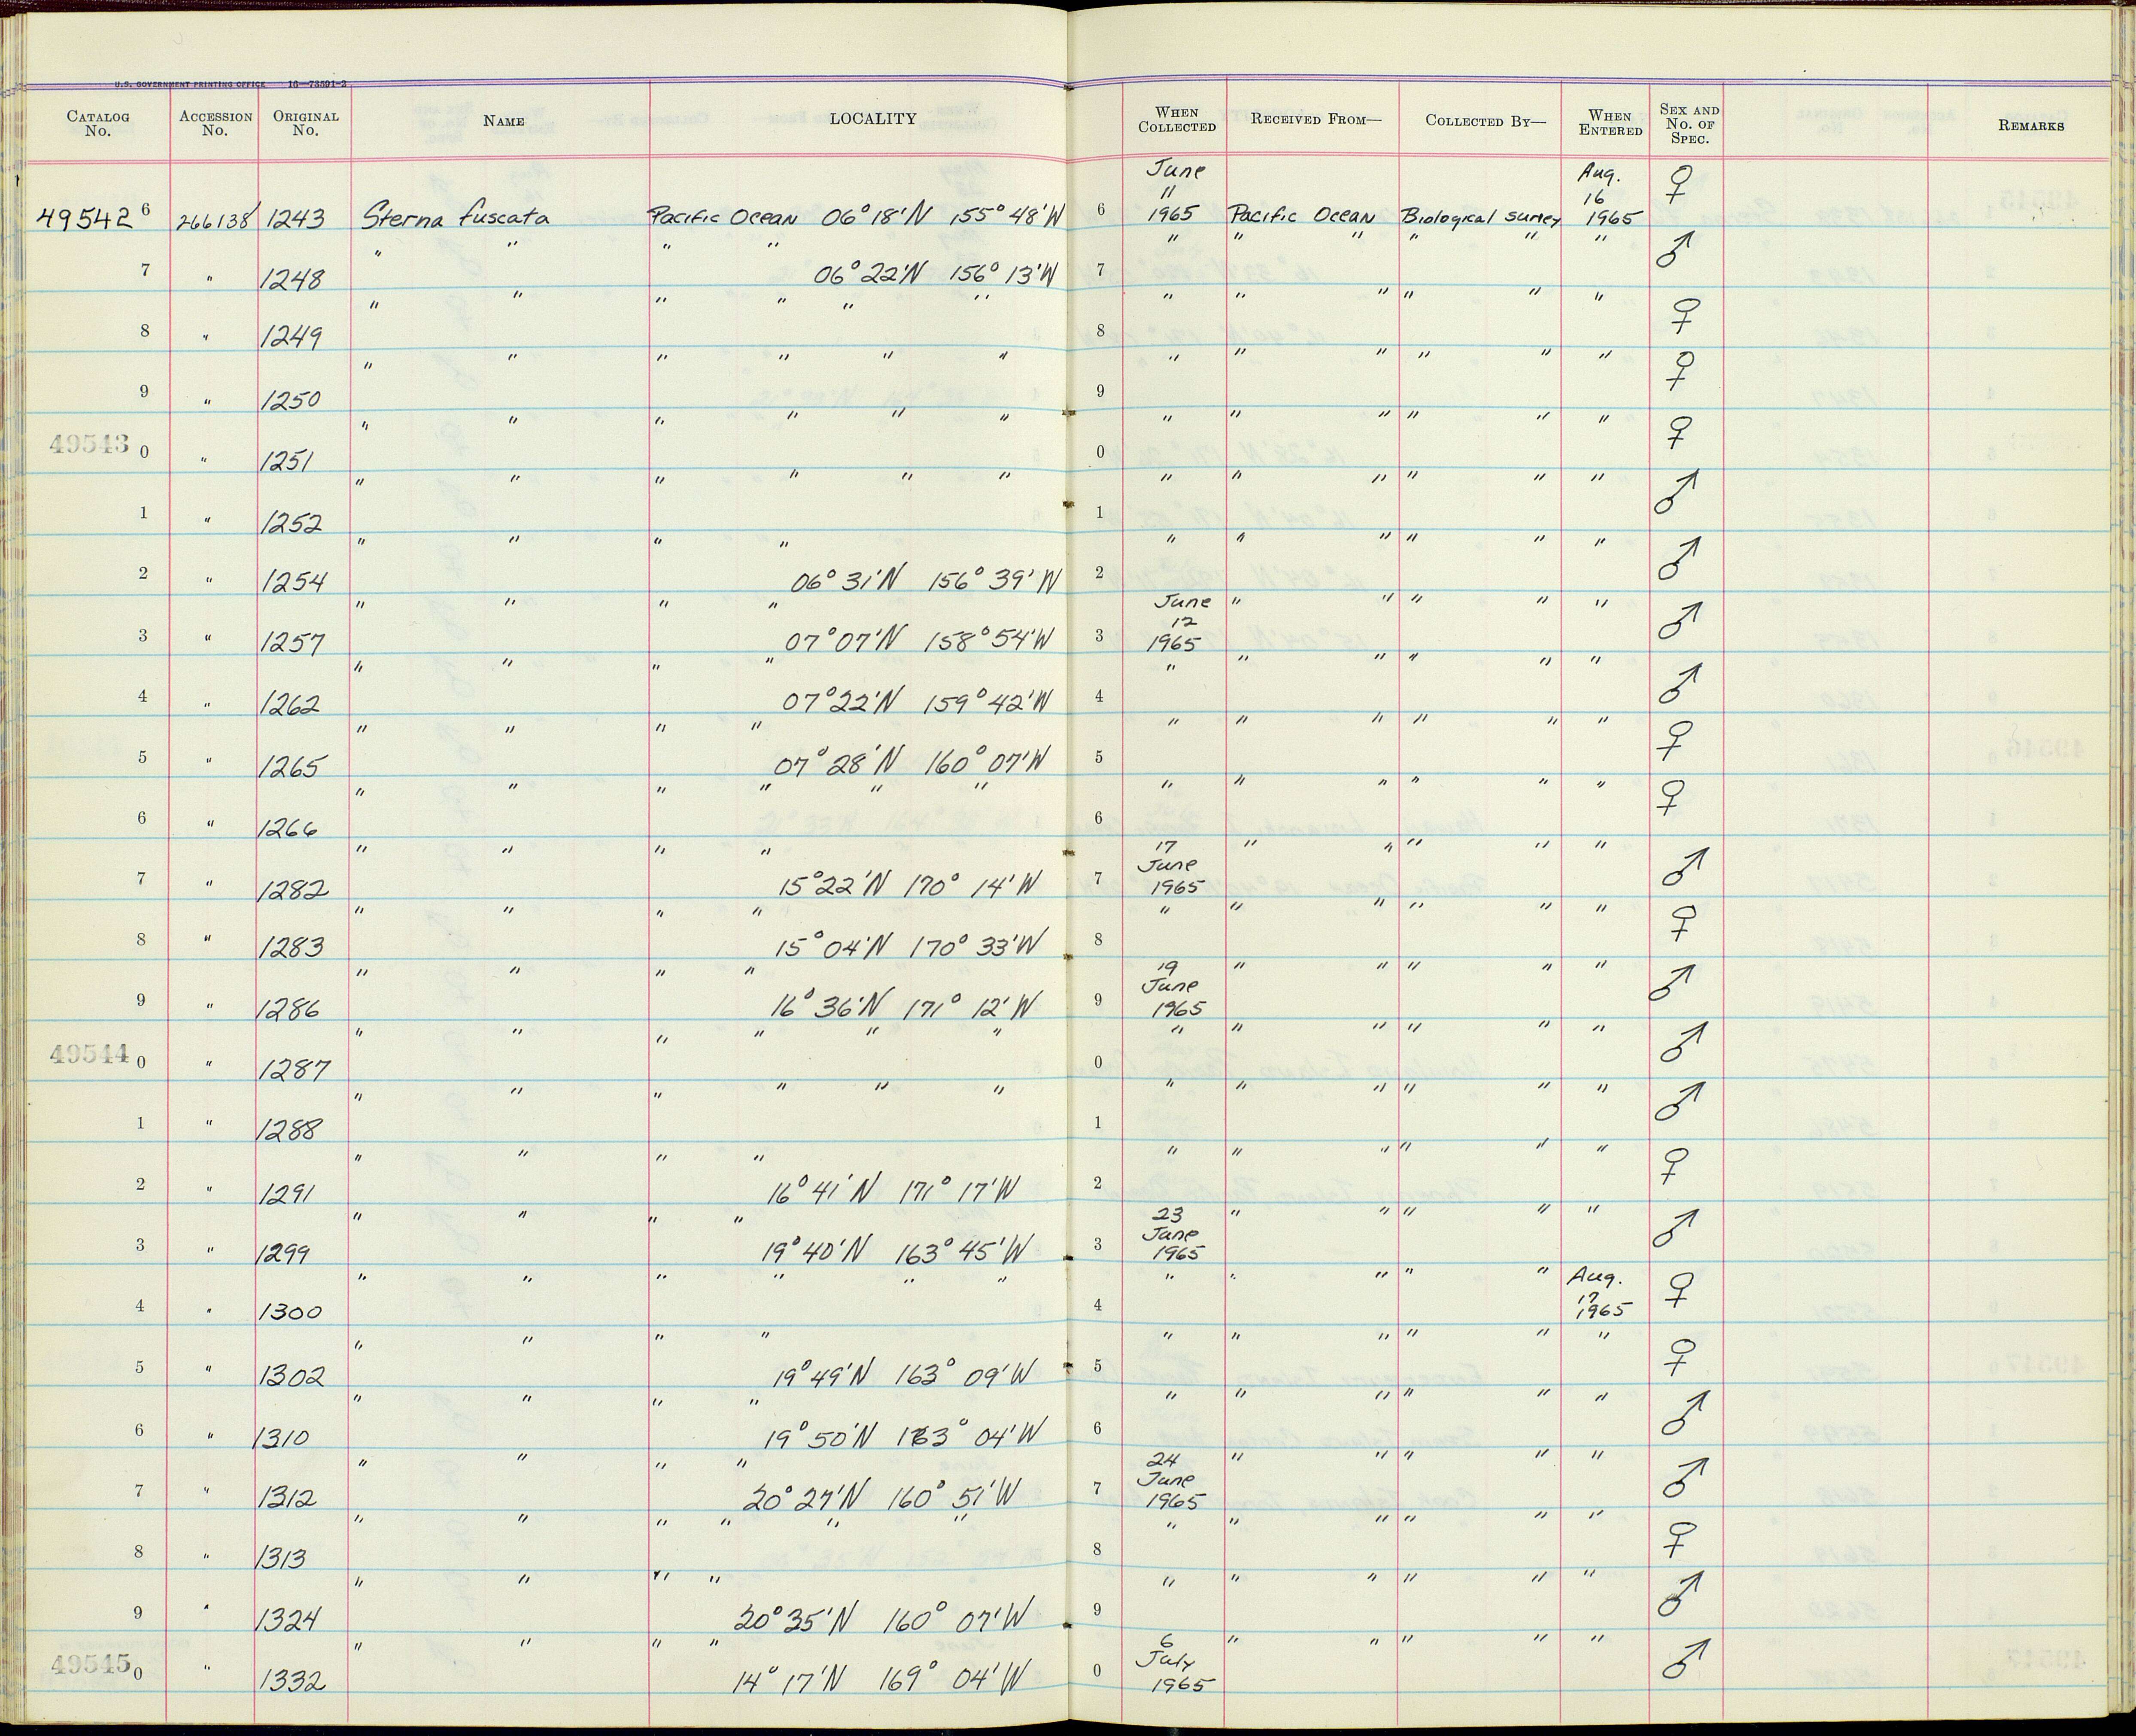 U.S. GOVERNMENT PRINTING OFFICE 16—73591-2
CATALOG No. ACCESSION No. ORIGINAL No. NAME LOCALITY WHEN COLLECTED RECEIVED FROM— COLLECTED BY— WHEN ENTERED SEX AND No. OF SPEC. REMARKS
49542 6 266138 1243 Sterna fuscata Pacific Ocean 06° 18' N 155° 48' W 6 June 11 1965 Pacific Ocean Biological Survey Aug. 16 1965 ♀
7 " 1248 " " " " 06° 22' N 156° 13' W 7 " " " " " " ♂
8 " 1249 " " " " " " 8 " " " " " " ♀
9 " 1250 " " " " " " 9 " " " " " " ♀
49543 0 " 1251 " " " " " " 0 " " " " " " ♀
1 " 1252 " " " " " " 1 " " " " " " ♂
2 " 1254 " " " " 06° 31' N 156° 39' W 2 " " " " " " ♂
3 " 1257 " " " " 07° 07' N 158° 54' W 3 June 12 1965 " " " " " ♂
4 " 1262 " " " " 07° 22' N 159° 42' W 4 " " " " " " ♂
5 " 1265 " " " " 07° 28' N 160° 07' W 5 " " " " " " ♀
6 " 1266 " " " " " " 6 " " " " " " ♀
7 " 1282 " " " " 15° 22' N 170° 14' W 7 17 June 1965 " " " " " ♂
8 " 1283 " " " " 15° 04' N 170° 33' W 8 " " " " " " ♀
9 " 1286 " " " " 16° 36' N 171° 12' W 9 19 June 1965 " " " " " ♂
49544 0 " 1287 " " " " " " 0 " " " " " " ♂
1 " 1288 " " " " " " 1 " " " " " " ♂
2 " 1291 " " " " 16° 41' N 171° 17' W 2 " " " " " " ♀
3 " 1299 " " " " 19° 40' N 163° 45' W 3 23 June 1965 " " " " " ♂
4 " 1300 " " " " " " 4 " " " " " Aug. 17 1965 ♀
5 " 1302 " " " " 19° 49' N 163° 09' W 5 " " " " " " ♀
6 " 1310 " " " " 19° 50' N 163° 04' W 6 " " " " " " ♂
7 " 1312 " " " " 20° 27' N 160° 51' W 7 24 June 1965 " " " " " ♂
8 " 1313 " " " " " " 8 " " " " " " ♀
9 " 1324 " " " " 20° 35' N 160° 07' W 9 " " " " " " ♂
49545 0 " 1332 " " " " 14° 17' N 169° 04' W 0 6 July 1965 " " " " " ♂